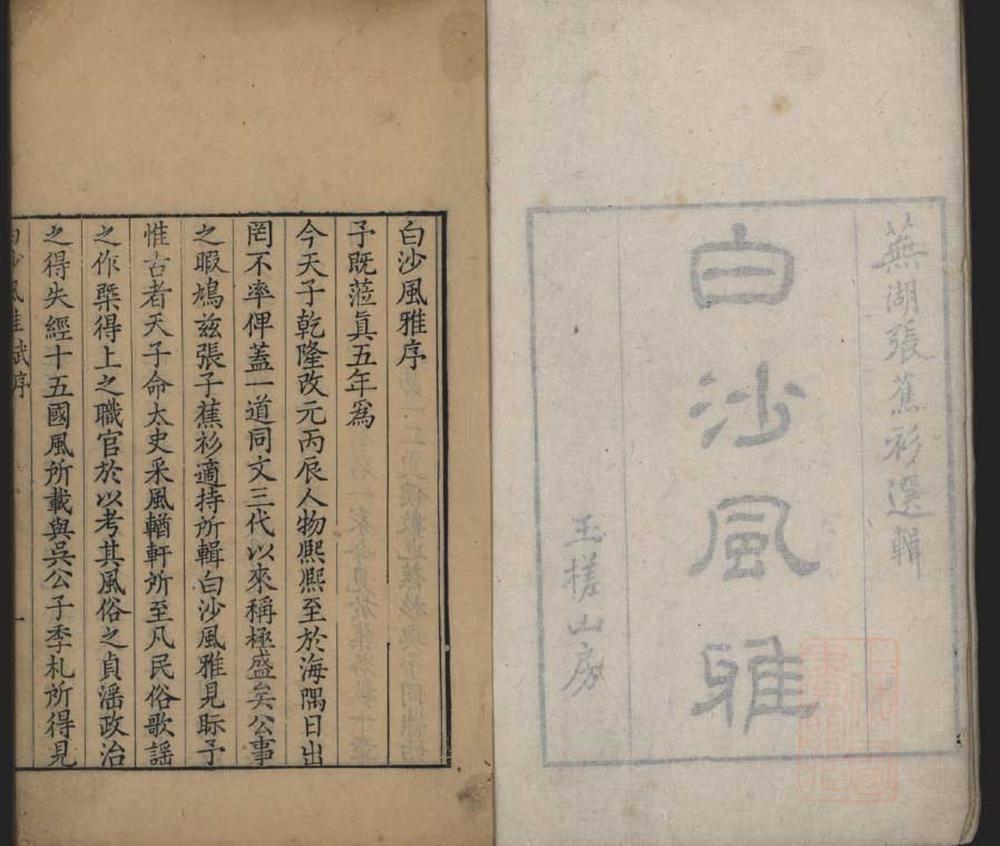 蕪湖張蕉衫選輯
白沙風雅
玉槎山房
白沙風雅序
予既蒞眞五年爲
今天子乾隆改元丙辰人物熙熙至於海隅日出
罔不率俾蓋一道同文三代以來稱極盛矣公事
之暇鳩兹張子蕉衫適持所輯白沙風雅見眎予
惟古者天子命太史采風輶軒所至凡民俗歌謡
之作槩得上之職官於以考其風俗之貞滛政治
之得失經十五國風所載與吳公子季札所得見
白沙風雅
序
一